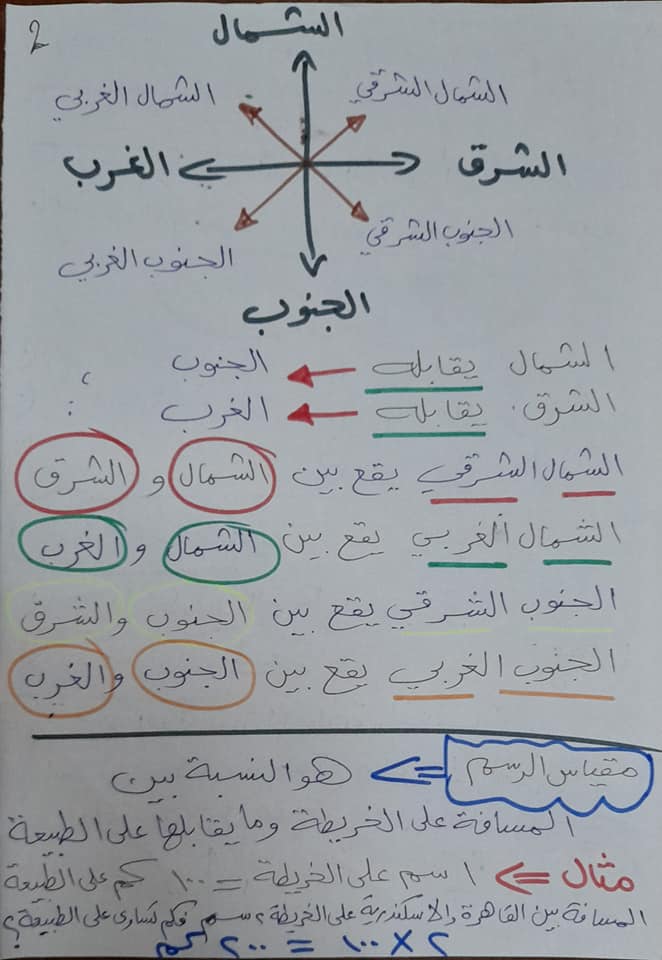 2
الشمال
الشمال الغربي
الشمال الشرقي
الغرب
الشرق
الجنوب الغربي
الجنوب الشرقي
الجنوب
الشمال يقابله الجنوب ،
الشرق. يقابله الغرب :
الشمال الشرقي يقع بين الشمال و الشرق
الشمال الغربي يقع بين الشمال و الغرب
الجنوب الشرقي يقع بين الجنوب والشرق
الجنوب الغربي يقع بين الجنوب والغرب
مقياس الرسم هو النسبة بين
المسافة على الخريطة وما يقابلها على الطبيعة
مثال ١ سم على الخريطة = ١٠٠ كم على الطبيعة
المسافة بين القاهرة والاسكندرية على الخريطة ٢ سم فكم تساوى على الطبيعة؟
٢ × ١٠٠ = ٢٠٠ كم